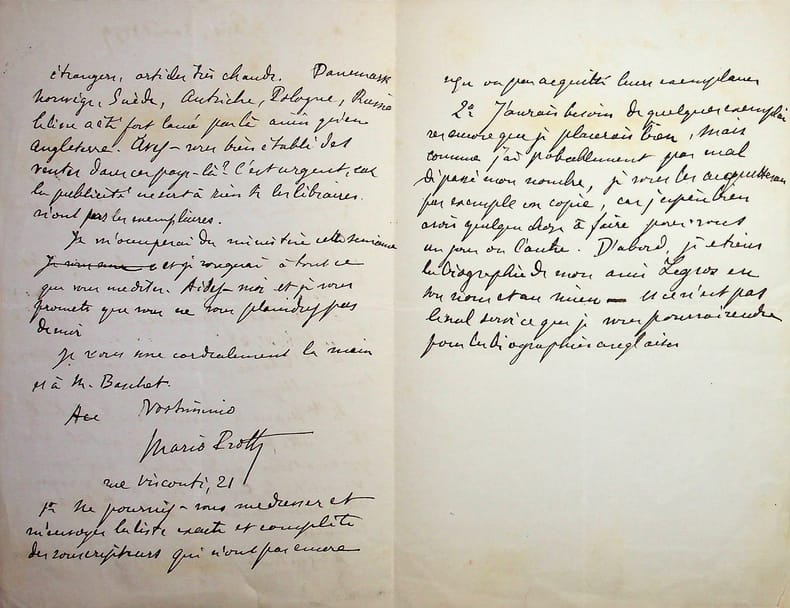 étrangers, articles très chauds. Danemark
Norwège, Suède, Autriche, Pologne, Russie
le livre a été fort lancé par là ainsi qu'en
Angleterre. Avez-vous bien établi des
ventes dans ces pays-là? C'est urgent, car
la publicité ne sert à rien si les libraires
n'ont pas les exemplaires.
Je m'occuperai du ministère cette semaine
et je songerai à tout ce
que vous me dites. Aidez-moi et je vous
promets que vous ne vous plaindrez pas
de moi
Je vous serre cordialement la main
et à M. Baschet.
Vostrissimo
Mario Proth
rue Visconti, 21
1° Ne pourriez-vous me dresser et
m'envoyer la liste exacte et complète
des souscripteurs qui n'ont pas encore
ou pas acquitté leurs exemplaires
2° J'aurais besoin de quelques exemplai
res encore que je placerais bien, mais
comme j'ai probablement pas mal
dépassé mon nombre, je vous les acquitterai
par exemple en copie, car j'espère bien
avoir quelque chose à faire pour vous
un jour ou l'autre. D'abord, je retiens
la biographie de mon ami Legros en
son nom et au mien — ce n'est pas
le seul service que je vous pourrai rendre
pour les biographies anglaises